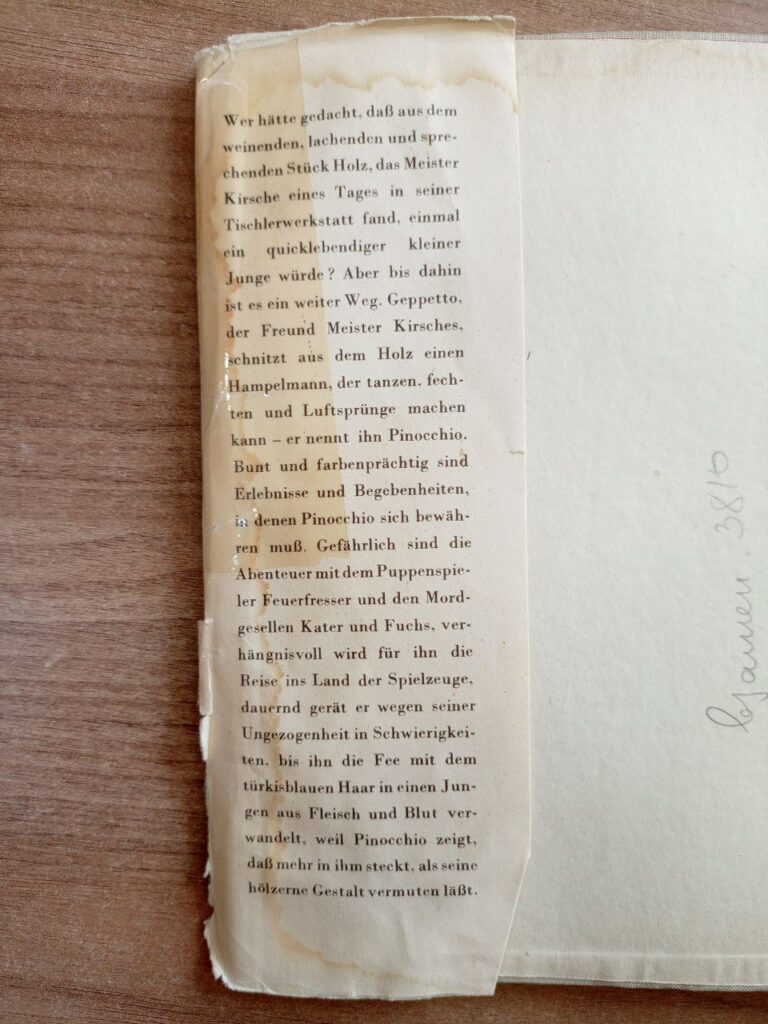 Wer hätte gedacht, daß aus dem
weinenden, lachenden und spre-
chenden Stück Holz, das Meister
Kirsche eines Tages in seiner
Tischlerwerkstatt fand, einmal
ein quicklebendiger kleiner
Junge würde? Aber bis dahin
ist es ein weiter Weg. Geppetto,
der Freund Meister Kirsches,
schnitzt aus dem Holz einen
Hampelmann, der tanzen, fech-
ten und Luftsprünge machen
kann – er nennt ihn Pinocchio.
Bunt und farbenprächtig sind
Erlebnisse und Begebenheiten,
in denen Pinocchio sich bewäh-
ren muß. Gefährlich sind die
Abenteuer mit dem Puppenspie-
ler Feuerfresser und den Mord-
gesellen Kater und Fuchs, ver-
hängnisvoll wird für ihn die
Reise ins Land der Spielzeuge,
dauernd gerät er wegen seiner
Ungezogenheit in Schwierigkei-
ten, bis ihn die Fee mit dem
türkisblauen Haar in einen Jun-
gen aus Fleisch und Blut ver-
wandelt, weil Pinocchio zeigt,
daß mehr in ihm steckt, als seine
hölzerne Gestalt vermuten läßt.
3810